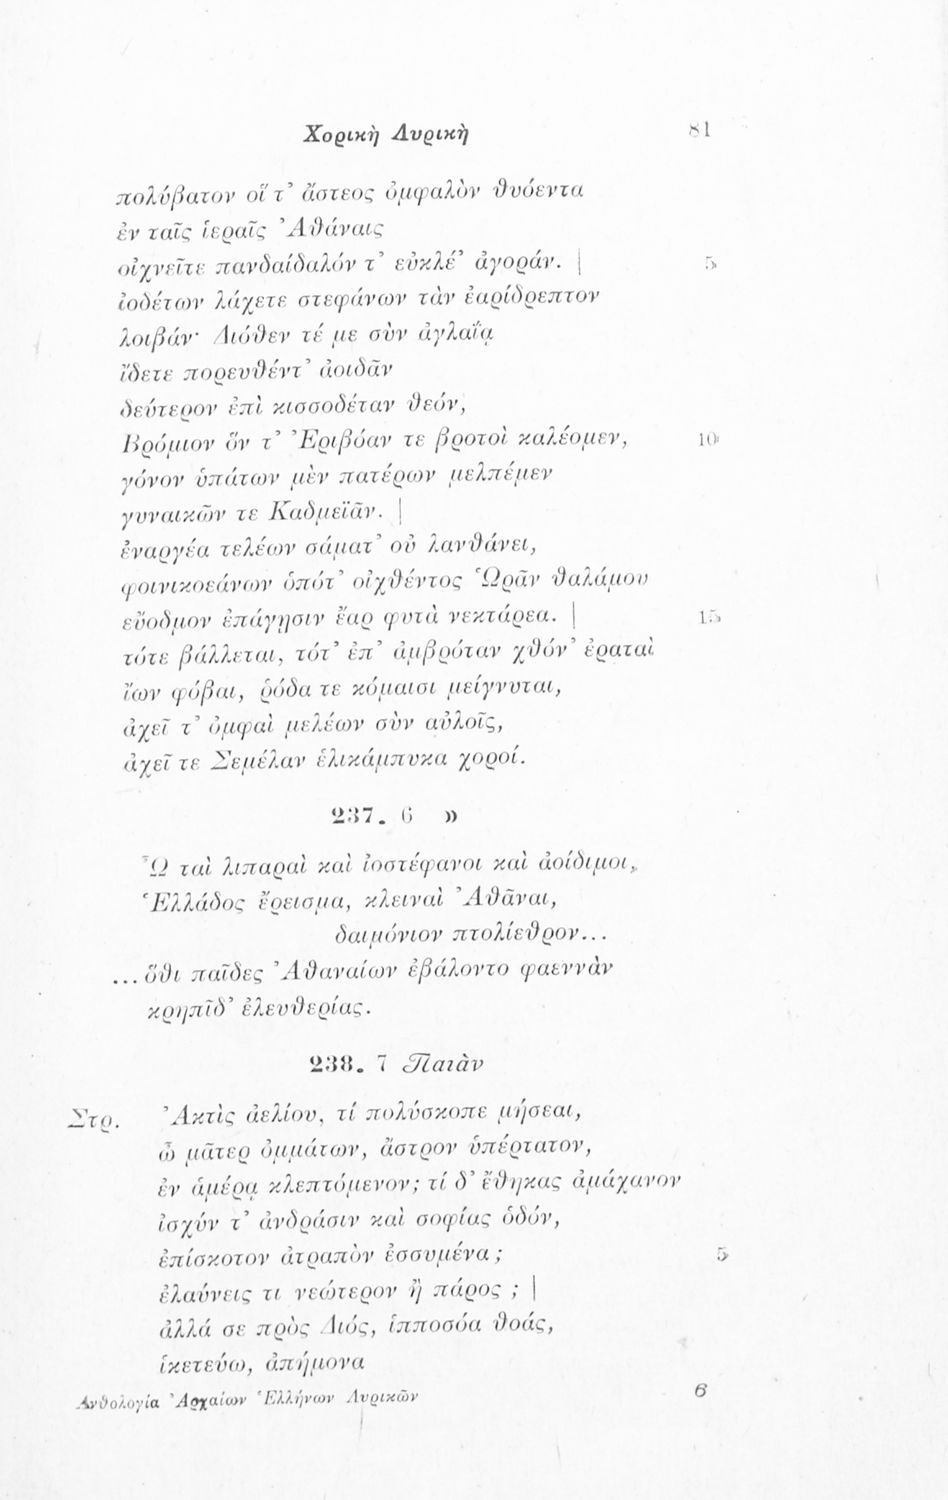 Χορικὴ Λυρικὴ 81
πολύβατον οἵ τ' ἄστεος ὀμφαλὸν θυόεντα
ἐν ταῖς ἱεραῖς Ἀθάναις
οἰχνεῖτε πανδαίδαλόν τ' εὐκλέ' ἀγοράν. | 5
ἰοδέτων λάχετε στεφάνων τὰν ἐαρίδρεπτον
λοιβάν· Διόθεν τέ με σὺν ἀγλαΐᾳ
ἴδετε πορευθέντ' ἀοιδᾶν
δεύτερον ἐπὶ κισσοδέταν θεόν,
Βρόμιον ὅν τ' Ἐριβόαν τε βροτοὶ καλέομεν, 10
γόνον ὑπάτων μὲν πατέρων μελπέμεν
γυναικῶν τε Καδμεϊᾶν. |
ἐναργέα τελέων σάματ' οὐ λανθάνει,
φοινικοεάνων ὁπότ' οἰχθέντος Ὡρᾶν θαλάμου
εὔοδμον ἐπάγῃσιν ἔαρ φυτὰ νεκτάρεα. | 15
τότε βάλλεται, τότ' ἐπ' ἀμβρόταν χθόν' ἐραταὶ
ἴων φόβαι, ῥόδα τε κόμαισι μείγνυται,
ἀχεῖ τ' ὀμφαὶ μελέων σὺν αὐλοῖς,
ἀχεῖ τε Σεμέλαν ἑλικάμπυκα χοροί.
237. 6 »
Ὦ ταὶ λιπαραὶ καὶ ἰοστέφανοι καὶ ἀοίδιμοι,
Ἑλλάδος ἔρεισμα, κλειναὶ Ἀθᾶναι,
δαιμόνιον πτολίεθρον...
...ὅθι παῖδες Ἀθαναίων ἐβάλοντο φαεννὰν
κρηπῖδ' ἐλευθερίας.
238. 7 Παιὰν
Στρ. Ἀκτὶς ἀελίου, τί πολύσκοπε μήσεαι,
ὦ μᾶτερ ὀμμάτων, ἄστρον ὑπέρτατον,
ἐν ἁμέρᾳ κλεπτόμενον; τί δ' ἔθηκας ἀμάχανον
ἰσχύν τ' ἀνδράσιν καὶ σοφίας ὁδόν,
ἐπίσκοτον ἀτραπὸν ἐσσυμένα; 5
ἐλαύνεις τι νεώτερον ἢ πάρος ; |
ἀλλά σε πρὸς Διός, ἱπποσόα θοάς,
ἱκετεύω, ἀπήμονα
Ἀνθολογία Ἀρχαίων Ἑλλήνων Λυρικῶν 6